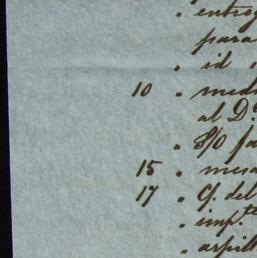 " entreg
para
" id
10 " med
al D.
" S/O fa
15 " mesa
17 " Cf. del
" imp.te
" arpill